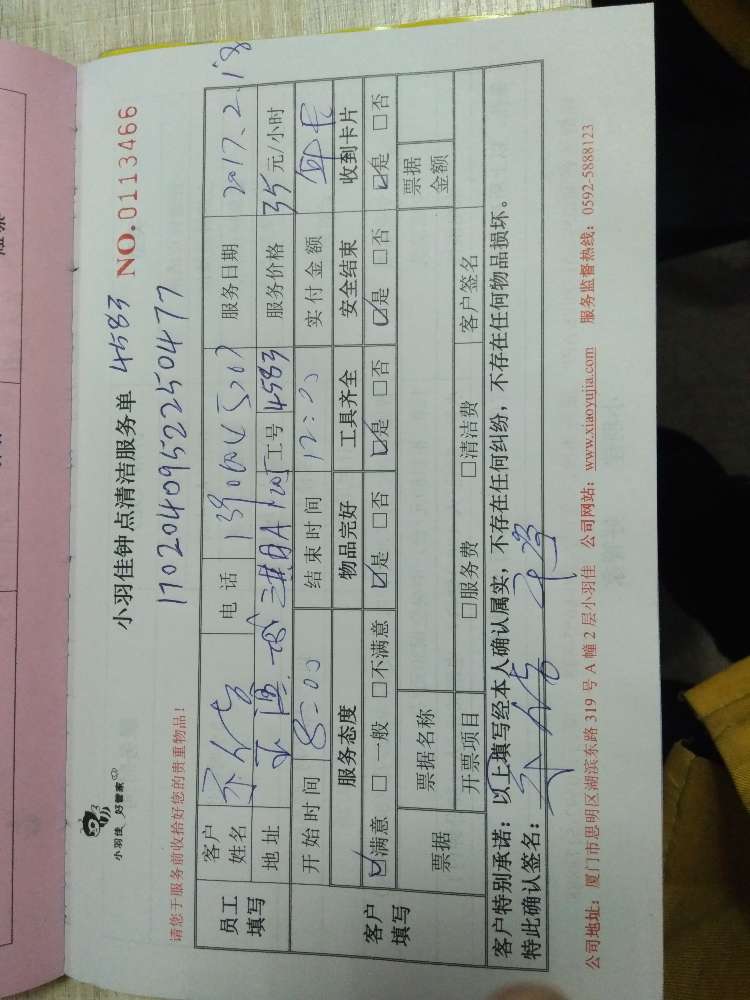 小羽佳 好管家
小羽佳钟点清洁服务单 4583 NO.0113466
1702040952250477
请您于服务前收拾好您的贵重物品!
员工填写 客户姓名 电话 服务日期 2017.2.18
地址 工号 4583 服务价格 35元/小时
客户填写 开始时间 8:00 结束时间 12:00 实付金额 年卡
服务态度 物品完好 工具齐全 安全结束 收到卡片
☑满意 □一般 □不满意 ☑是 □否 ☑是 □否 ☑是 □否 ☑是 □否
票据 票据名称 票据金额
开票项目 □服务费 □清洁费 客户签名
客户特别承诺:以上填写经本人确认属实,不存在任何纠纷,不存在任何物品损坏。
特此确认签名:
公司地址:厦门市思明区湖滨东路319号A幢2层小羽佳 公司网站:www.xiaoyujia.com 服务监督热线:0592-5888123